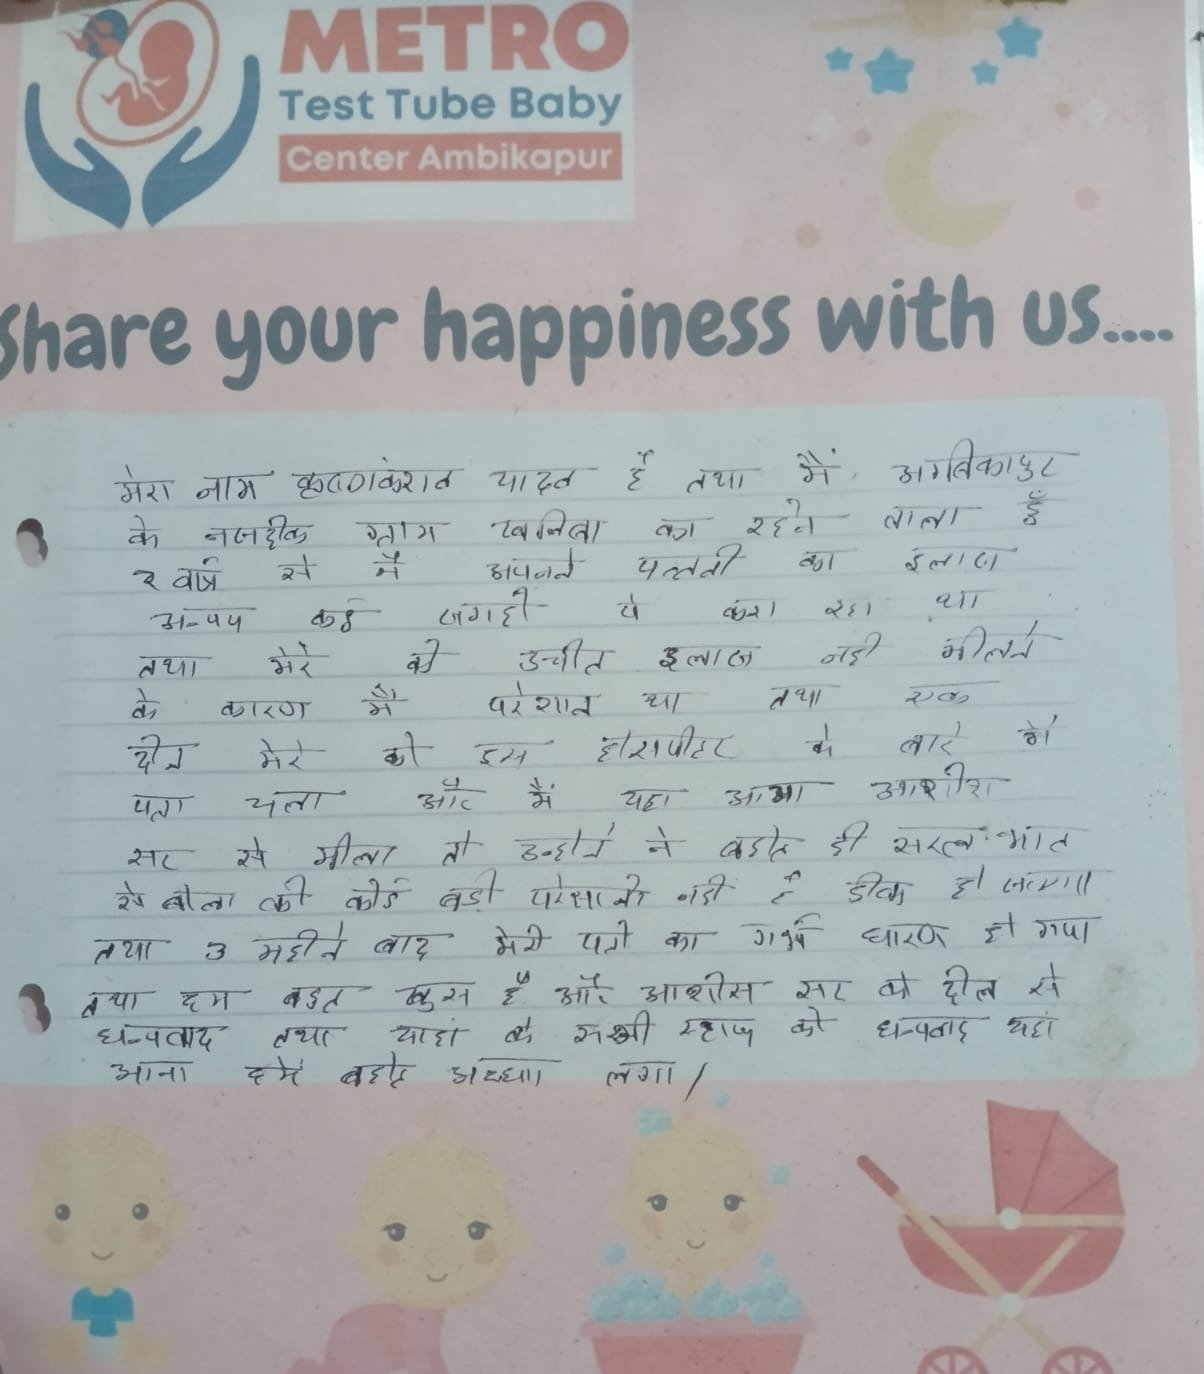 METRO
Test Tube Baby
Center Ambikapur
Share your happiness with us....
मेरा नाम यादव है तथा मैं
के नजदीक ग्राम का रहने वाला हूँ
२ वर्ष से मै अपनने पत्नती का इलाज
कई जगहो पे करा रहा था
तथा मेरे को उचीत इलाज नही मीलने
के कारण मै परेशान था तथा एक
दीन मेरे को इस होसपीटल के बारे में
पता चला और मैं यहा आया आशीश
सर से मीला तो उन्होने ने बहोत ही सरल भात
से बोला की कोई बड़ी परेसानी नही है ठीक हो जाएगा
तथा 3 महीने बाद मेरी पत्नी का गर्भ धारण हो गया
तथा हम बहुत खुस है और आशीस सर को दील से
धन्यवाद तथा याहां के सभी स्टाफ को धन्यवाद यहां
आना हमें बहोत अच्छा लगा /